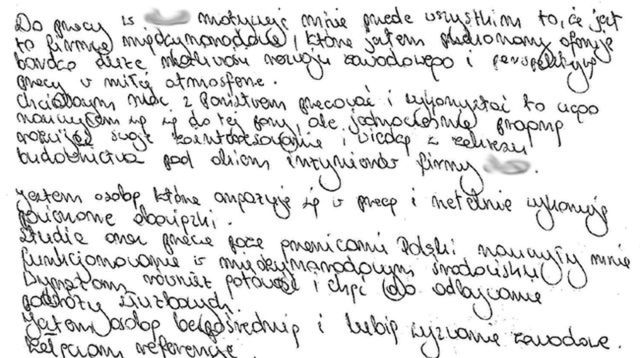 Do pracy w motywuje mnie przede wszystkim to, że jest
to firma międzynarodowa, która jestem przekonany oferuje
bardzo duże możliwości rozwoju zawodowego i perspektywę
pracy w miłej atmosferze.
Chciałbym móc z Państwem pracować i wykorzystać to czego
nauczyłem się do tej pory, ale jednocześnie pragnę
rozwijać swoje zainteresowanie i wiedzę z zakresu
budownictwa pod okiem inżynierów firmy
Jestem osobą która angażuje się w pracę i rzetelnie wykonuje
powierzone obowiązki.
Studia oraz praca poza granicami Polski nauczyły mnie
funkcjonowania w międzynarodowym środowisku
również gotowość i chęć do odbywania
podróży służbowych.
Jestem osobą bezpośrednią i lubię wyzwania zawodowe.
Załączam referencje